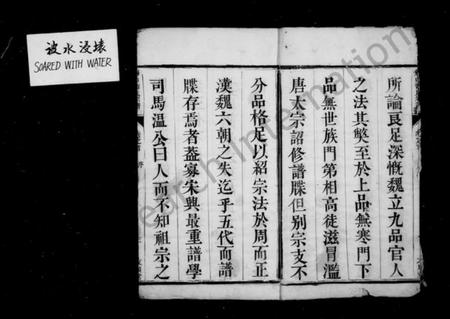 被水浸壞
SOARED WITH WATER
所論良足深慨魏立九品官人
之法其弊至於上品無寒門下
品無世族門第相高徒滋冒濫
唐太宗詔修譜牒但別宗支不
分品格足以紹宗法於周而正
漢魏六朝之失迄乎五代而譜
牒存焉者蓋寡宋興最重譜學
司馬溫公曰人而不知祖宗之